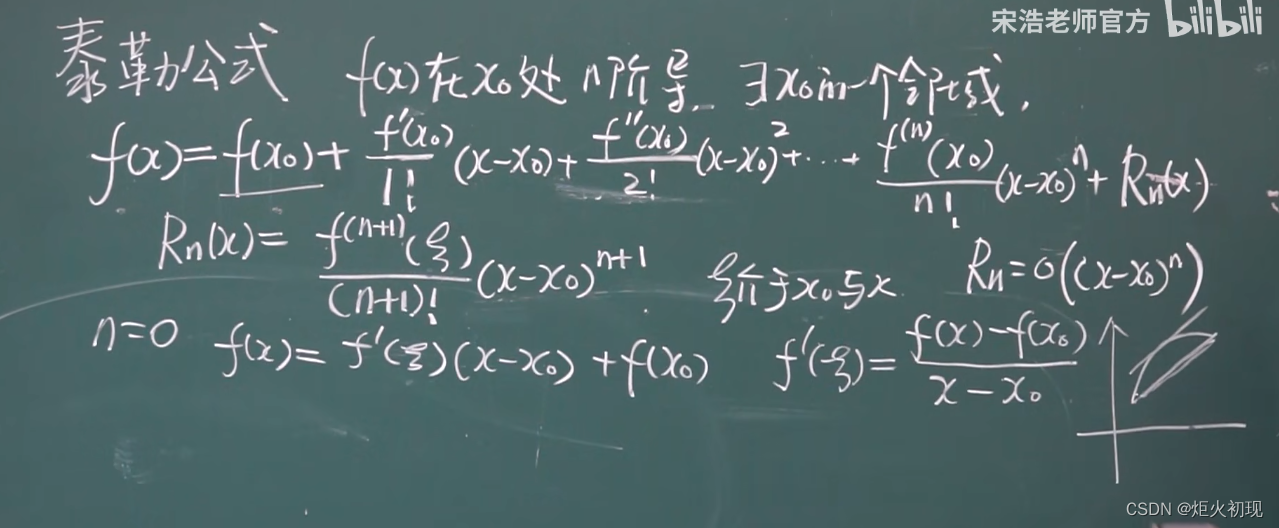 宋浩老师官方 bilibili
泰勒公式 f(x)在x₀处 n阶导. ∃x₀的一个邻域,
f(x)=f(x₀)+ f'(x₀)/1! (x-x₀)+ f''(x₀)/2! (x-x₀)²+⋯+ f⁽ⁿ⁾(x₀)/n! (x-x₀)ⁿ+ Rn(x)
Rn(x)= f⁽ⁿ⁺¹⁾(ξ)/(n+1)! (x-x₀)ⁿ⁺¹ ξ介于x₀与x Rn=o((x-x₀)ⁿ)
n=0 f(x)= f'(ξ)(x-x₀)+f(x₀) f'(ξ)= f(x)-f(x₀)/x-x₀
CSDN @炬火初现